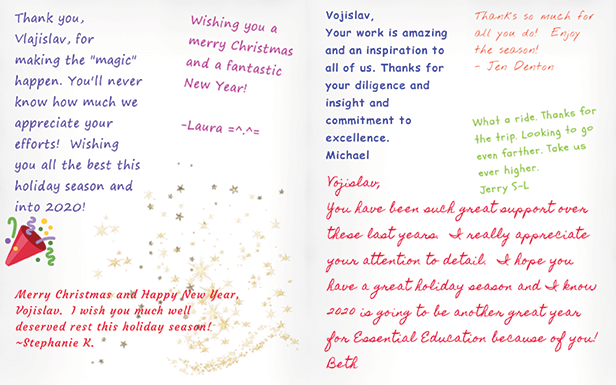 Thank you,
Vlajislav, for
making the "magic"
happen. You'll never
know how much we
appreciate your
efforts! Wishing
you all the best this
holiday season and
into 2020!
Wishing you a
merry Christmas
and a fantastic
New Year!
-Laura =^.^=
Merry Christmas and Happy New Year,
Vojislav. I wish you much well
deserved rest this holiday season!
~Stephanie K.
Vojislav,
Your work is amazing
and an inspiration to
all of us. Thanks for
your diligence and
insight and
commitment to
excellence.
Michael
Thanks so much for
all you do! Enjoy
the season!
- Jen Denton
What a ride. Thanks for
the trip. Looking to go
even farther. Take us
ever higher.
Jerry S-L
Vojislav,
You have been such great support over
these last years. I really appreciate
your attention to detail. I hope you
have a great holiday season and I know
2020 is going to be another great year
for Essential Education because of you!
Beth